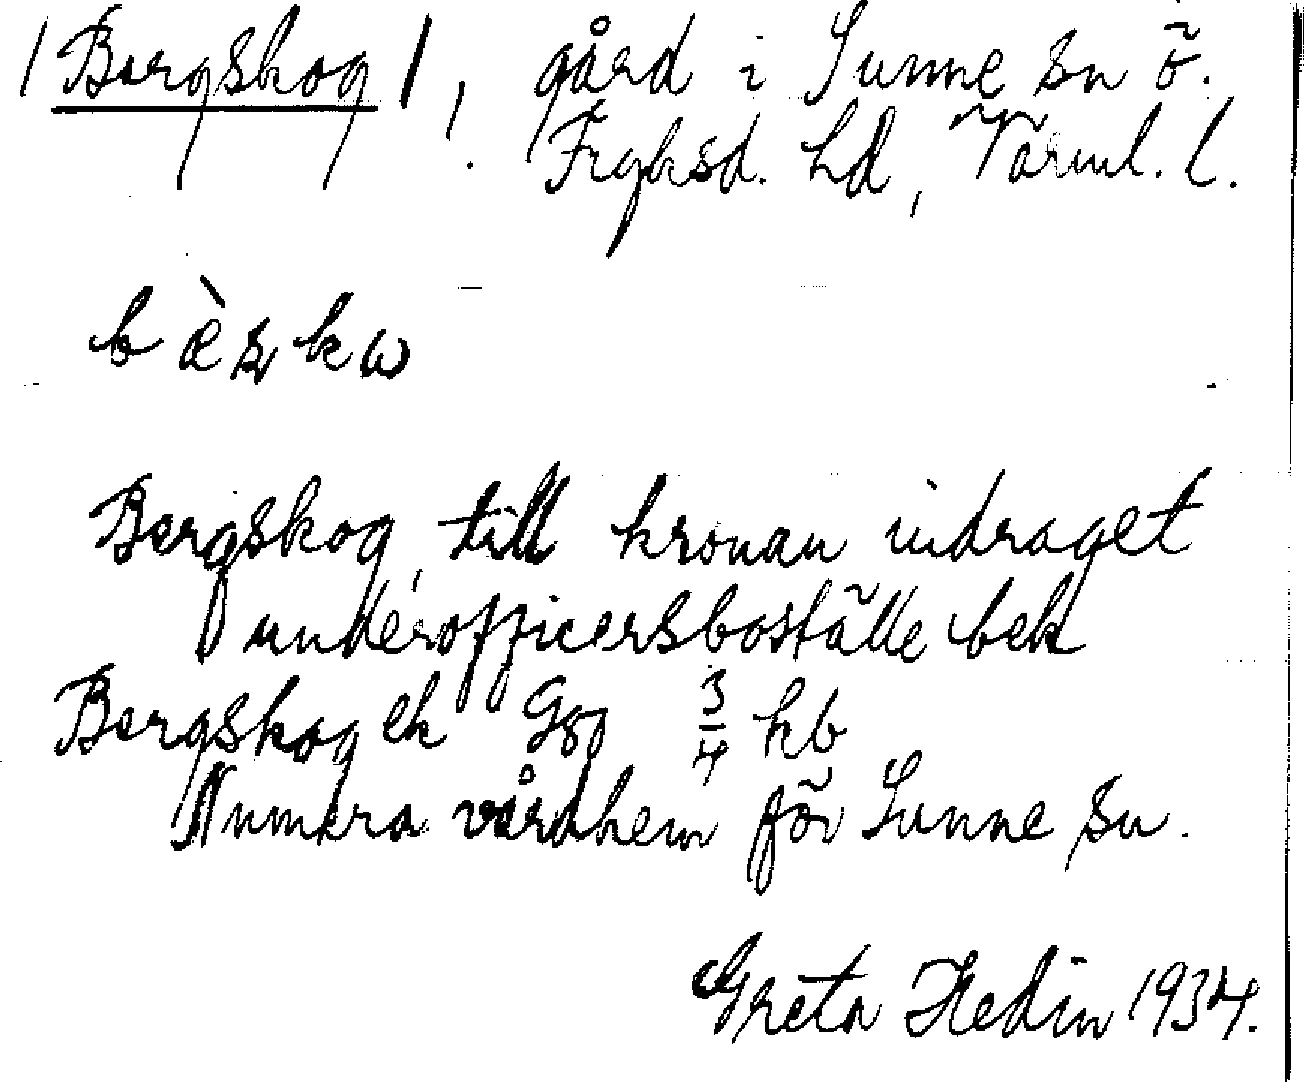 /Bergskog/, gård i Sunne sn ö.
Fryksd. hd, Värml. l.
bæ̀skω
Bergskog, till kronan indraget
underofficersboställe bek
Bergskog ek Gg ¾ hb
Numera vårdhem för Sunne sn.
Greta Hedin 1934.